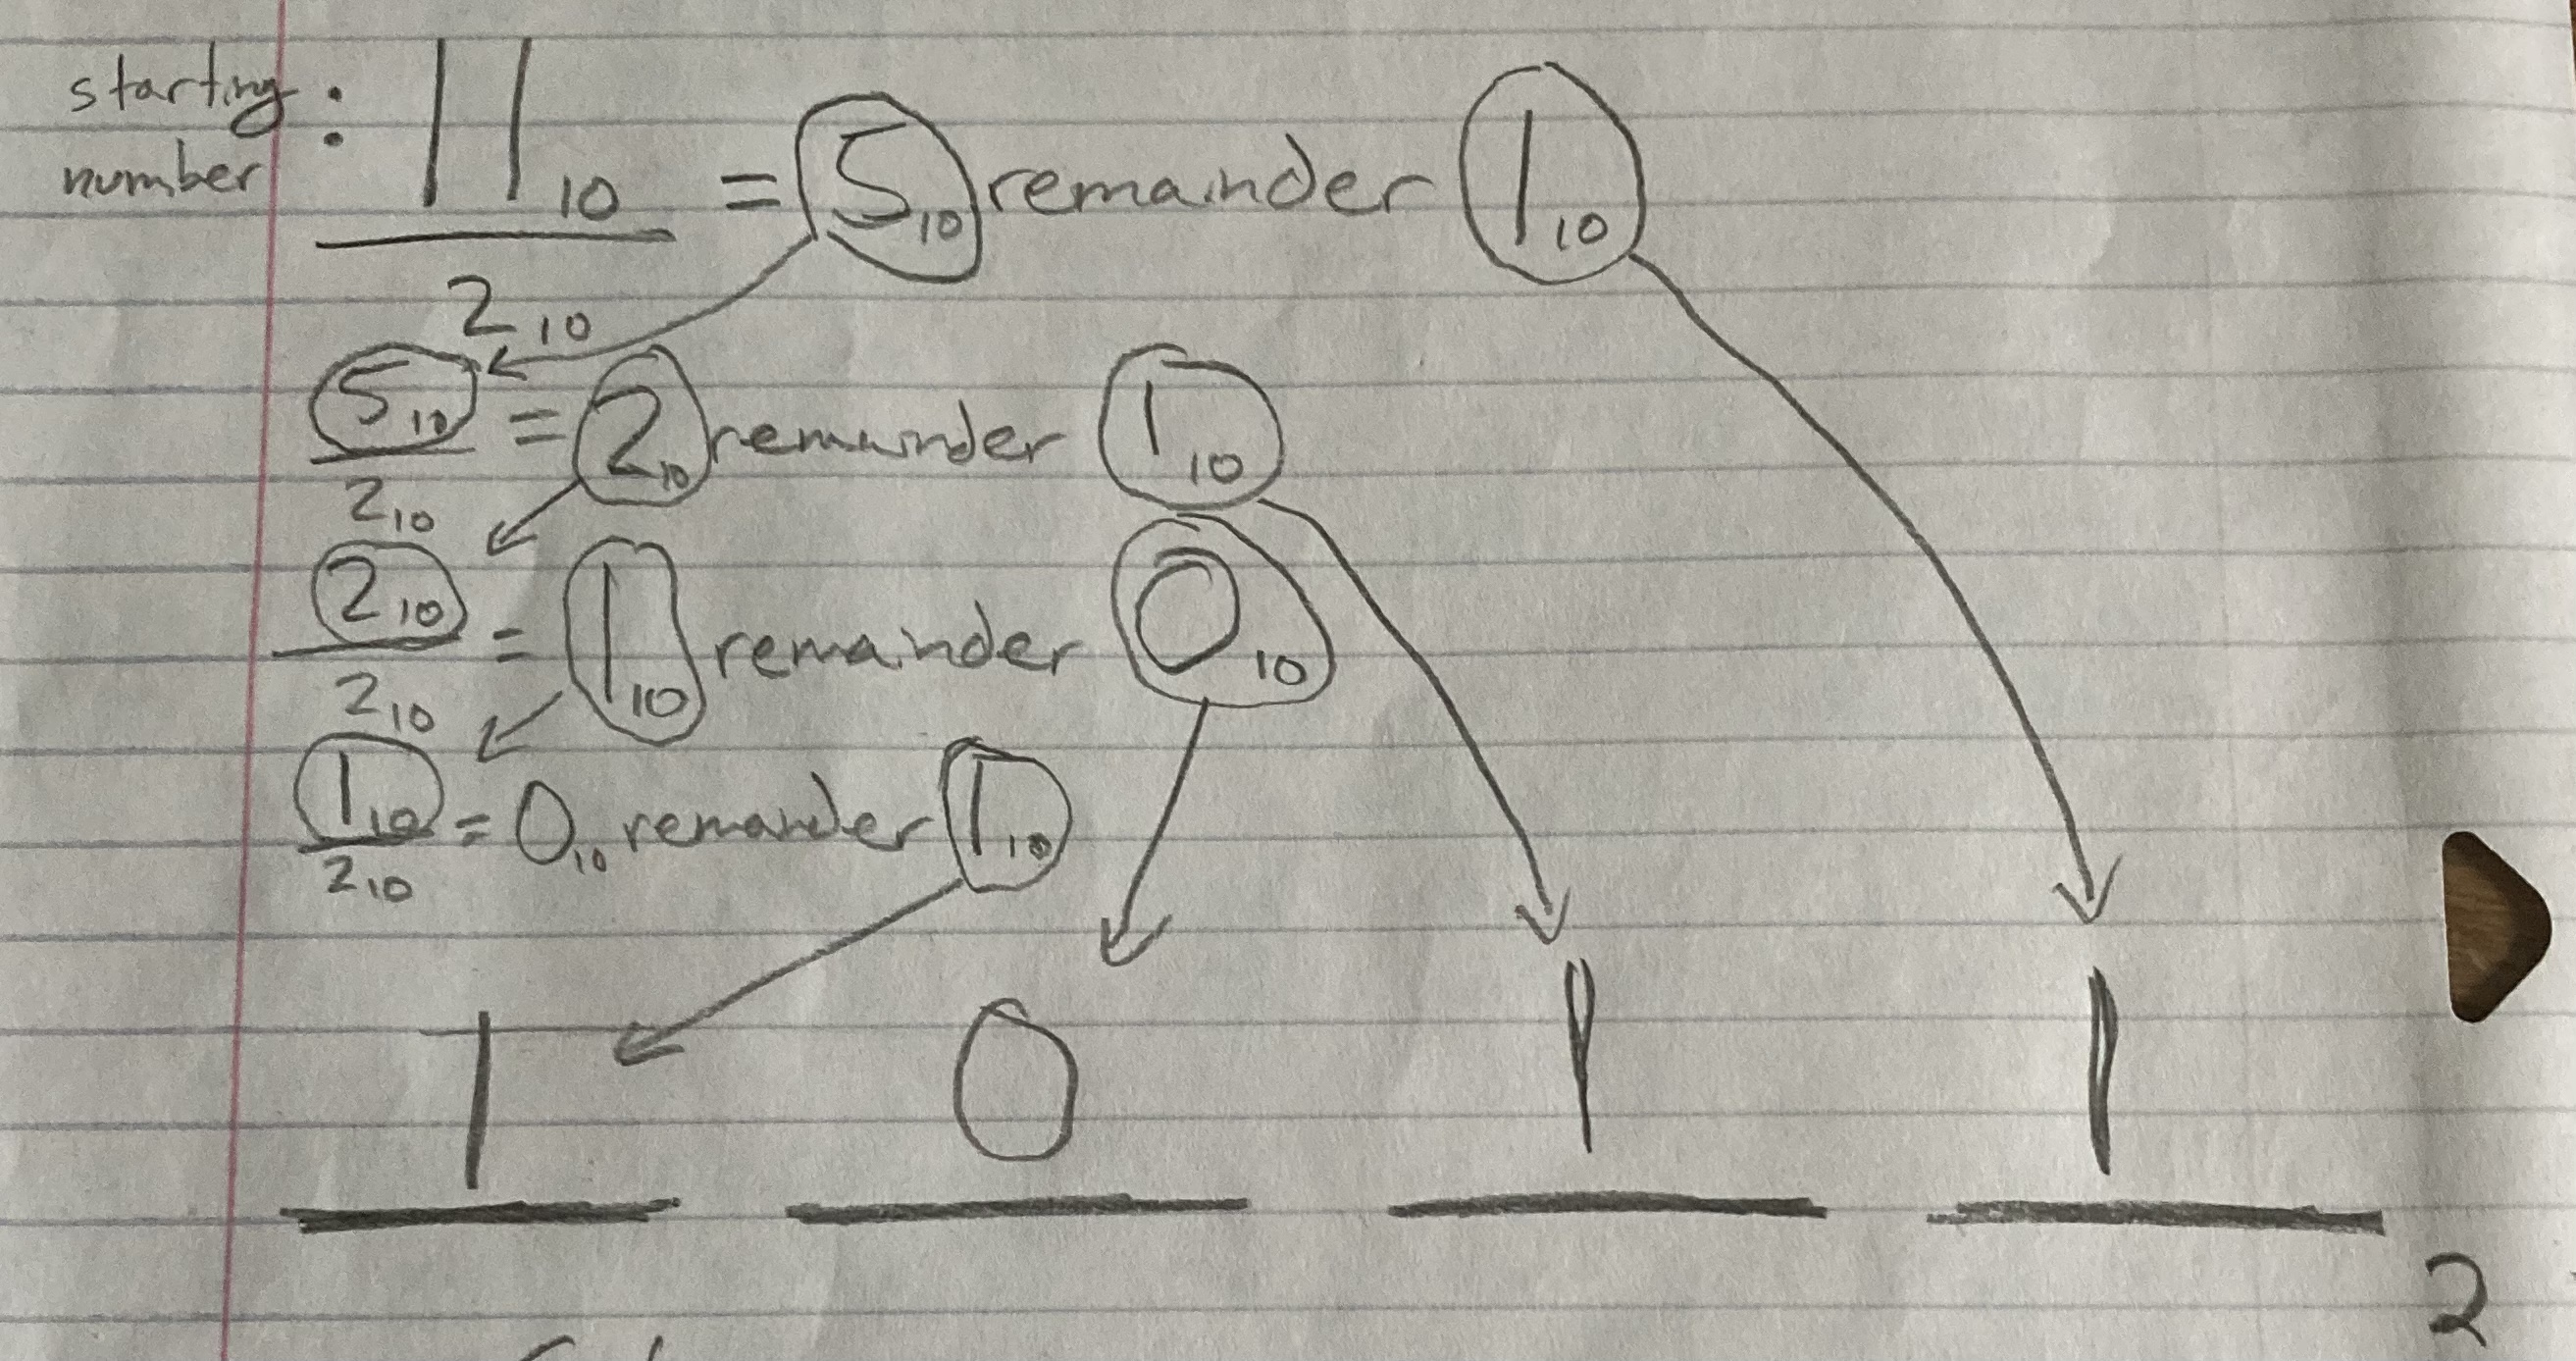 starting number : 11₁₀ / 2₁₀ = 5₁₀ remainder 1₁₀
5₁₀ / 2₁₀ = 2₁₀ remainder 1₁₀
2₁₀ / 2₁₀ = 1₁₀ remainder 0₁₀
1₁₀ / 2₁₀ = 0₁₀ remainder 1₁₀
1 0 1 1 ₂